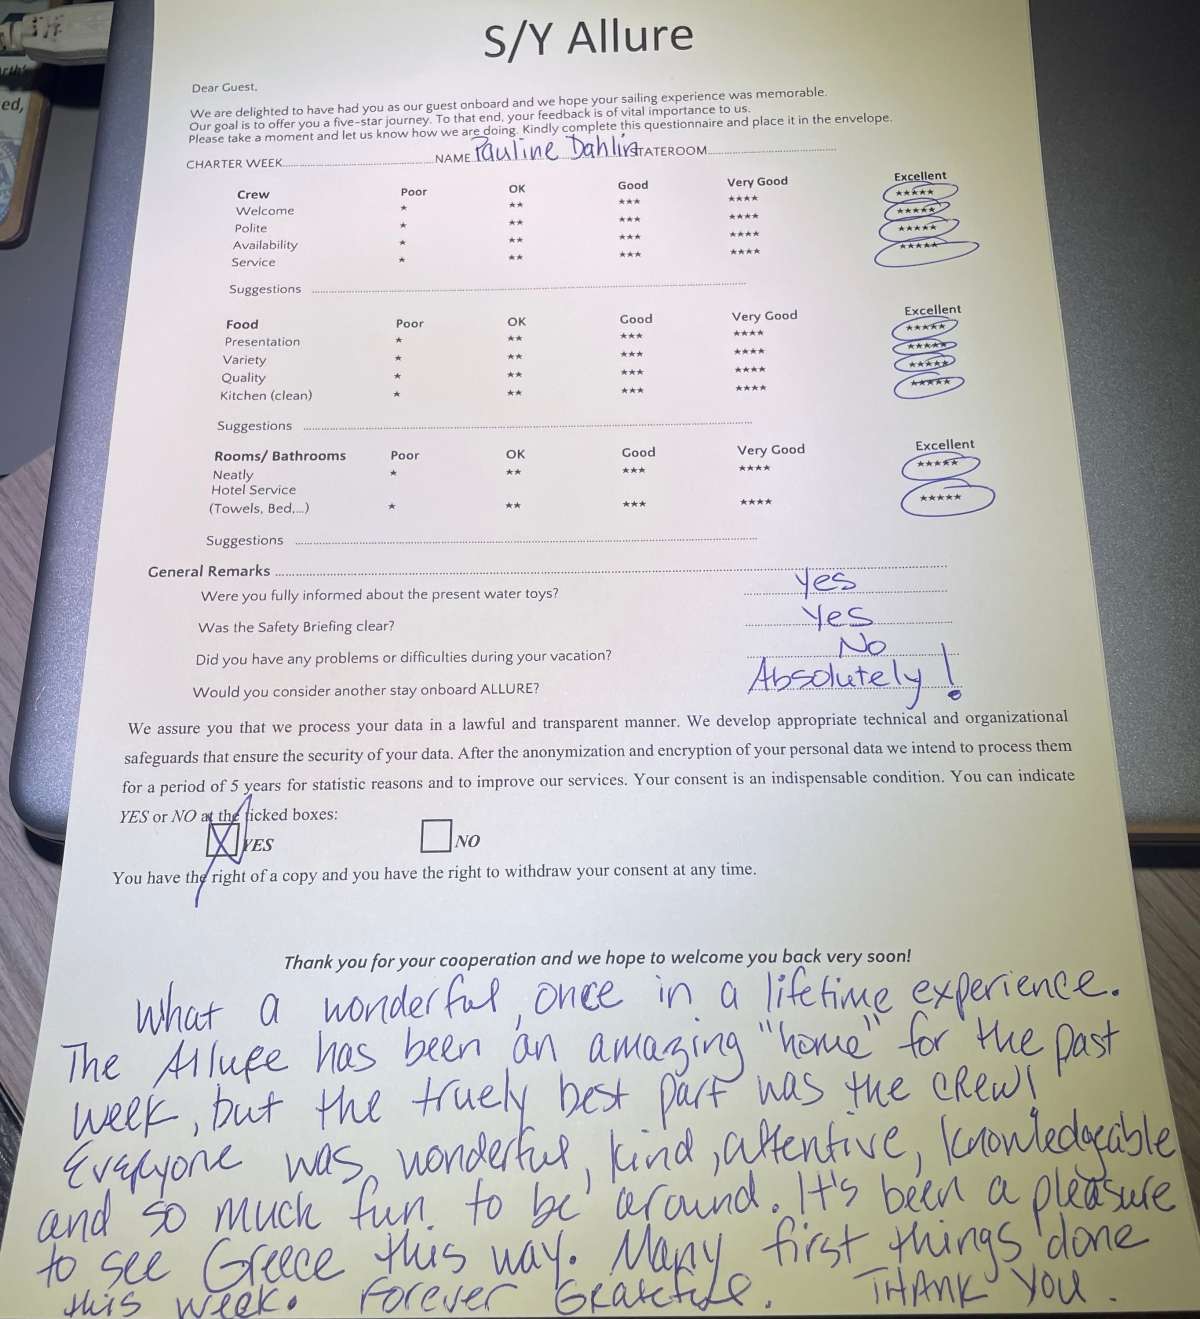 S/Y Allure
Dear Guest,
We are delighted to have had you as our guest onboard and we hope your sailing experience was memorable.
Our goal is to offer you a five-star journey. To that end, your feedback is of vital importance to us.
Please take a moment and let us know how we are doing. Kindly complete this questionnaire and place it in the envelope.
CHARTER WEEK NAME Pauline Dahlin STATEROOM
Crew Poor OK Good Very Good Excellent
Welcome * ** *** **** *****
Polite * ** *** **** *****
Availability * ** *** **** *****
Service * ** *** **** *****
Suggestions
Food Poor OK Good Very Good Excellent
Presentation * ** *** **** *****
Variety * ** *** **** *****
Quality * ** *** **** *****
Kitchen (clean) * ** *** **** *****
Suggestions
Rooms/ Bathrooms Poor OK Good Very Good Excellent
Neatly * ** *** **** *****
Hotel Service
(Towels, Bed,...) * ** *** **** *****
Suggestions
General Remarks
Were you fully informed about the present water toys? Yes
Was the Safety Briefing clear? Yes
Did you have any problems or difficulties during your vacation? No
Would you consider another stay onboard ALLURE? Absolutely!
We assure you that we process your data in a lawful and transparent manner. We develop appropriate technical and organizational
safeguards that ensure the security of your data. After the anonymization and encryption of your personal data we intend to process them
for a period of 5 years for statistic reasons and to improve our services. Your consent is an indispensable condition. You can indicate
YES or NO at the ticked boxes:
X YES NO
You have the right of a copy and you have the right to withdraw your consent at any time.
Thank you for your cooperation and we hope to welcome you back very soon!
What a wonderful, once in a lifetime experience.
The Allure has been an amazing "home" for the past
week, but the truely best part was the crew!
Everyone was wonderful, kind, attentive, knowledgeable
and so much fun to be around. It's been a pleasure
to see Greece this way. Many first things done
this week. Forever Grateful. THANK YOU.
ed,